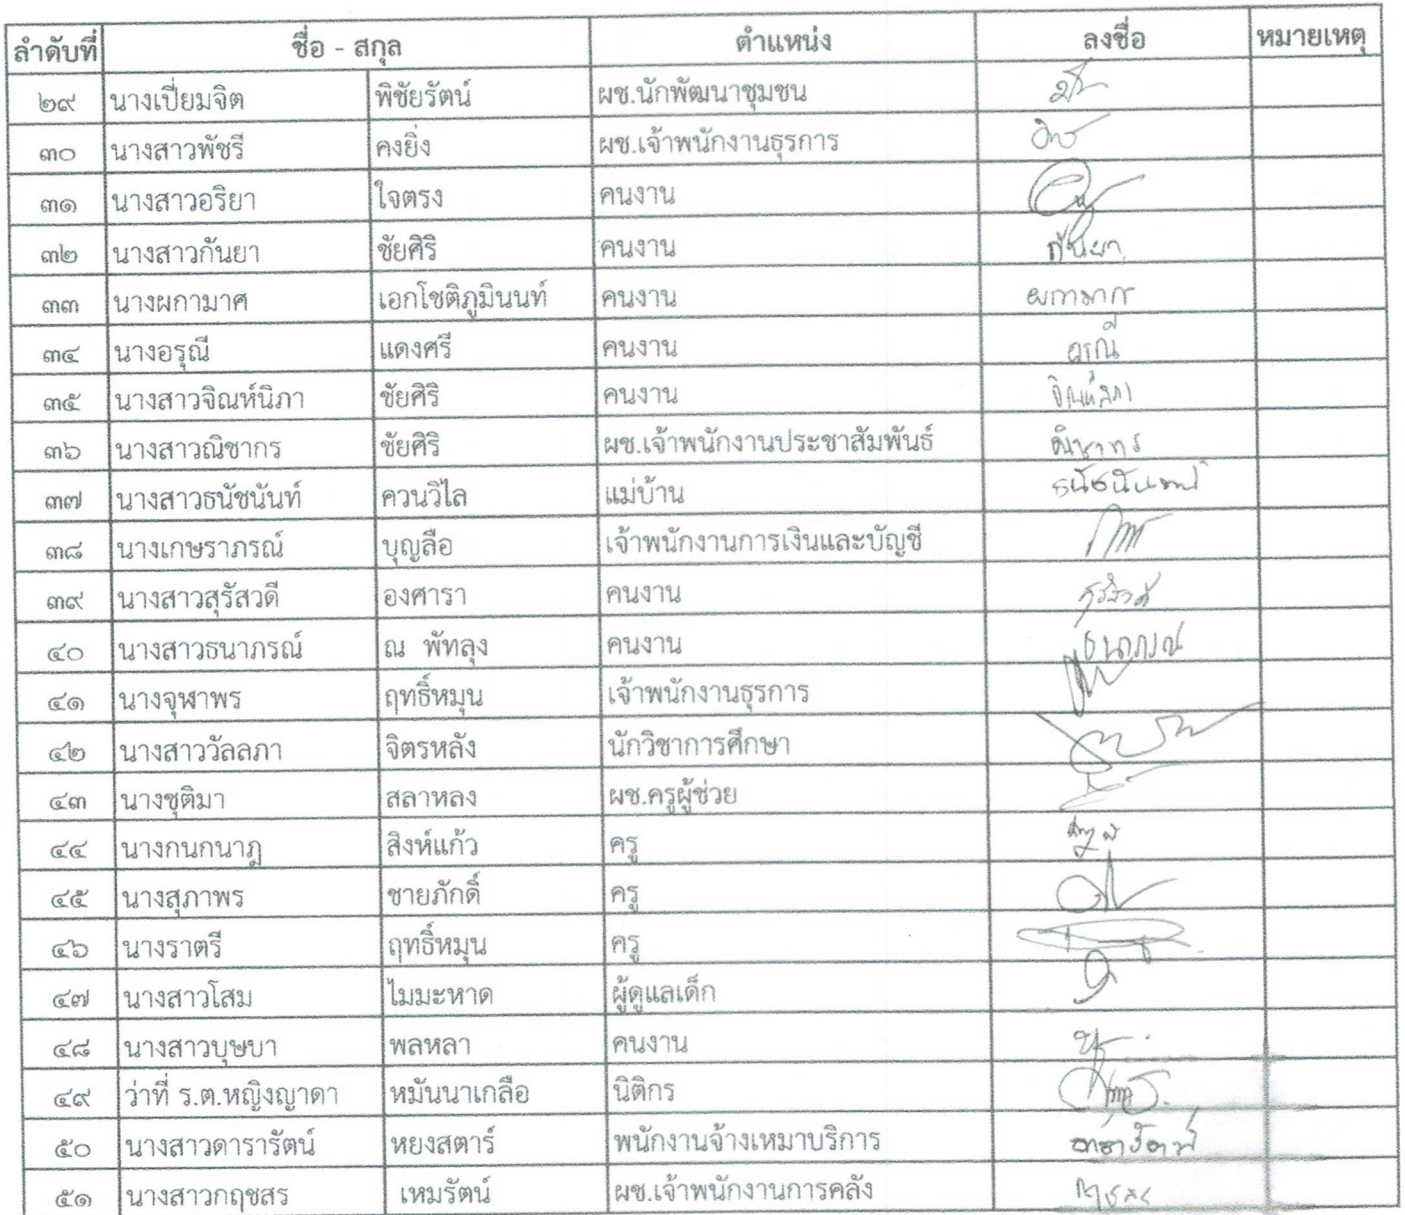 ลำดับที่ ชื่อ - สกุล ตำแหน่ง ลงชื่อ หมายเหตุ
๒๙ นางเปี่ยมจิต พิชัยรัตน์ ผช.นักพัฒนาชุมชน
๓๐ นางสาวพัชรี คงยิ่ง ผช.เจ้าพนักงานธุรการ
๓๑ นางสาวอริยา ใจตรง คนงาน
๓๒ นางสาวกันยา ชัยศิริ คนงาน กันยา
๓๓ นางผกามาศ เอกโชติภูมินนท์ คนงาน ผกามาศ
๓๔ นางอรุณี แดงศรี คนงาน อรุณี
๓๕ นางสาวจิณห์นิภา ชัยศิริ คนงาน จิณห์นิภา
๓๖ นางสาวณิชากร ชัยศิริ ผช.เจ้าพนักงานประชาสัมพันธ์ ณิชากร
๓๗ นางสาวธนัชนันท์ ควนวิไล แม่บ้าน ธนัชนันท์
๓๘ นางเกษราภรณ์ บุญลือ เจ้าพนักงานการเงินและบัญชี
๓๙ นางสาวสุรัสวดี องศารา คนงาน สุรัสวดี
๔๐ นางสาวธนาภรณ์ ณ พัทลุง คนงาน ธนาภรณ์
๔๑ นางจุฬาพร ฤทธิ์หมุน เจ้าพนักงานธุรการ
๔๒ นางสาววัลลภา จิตรหลัง นักวิชาการศึกษา
๔๓ นางชุติมา สลาหลง ผช.ครูผู้ช่วย
๔๔ นางกนกนาฏ สิงห์แก้ว ครู
๔๕ นางสุภาพร ชายภักดิ์ ครู
๔๖ นางราตรี ฤทธิ์หมุน ครู
๔๗ นางสาวโสม ไมมะหาด ผู้ดูแลเด็ก
๔๘ นางสาวบุษบา พลหลา คนงาน
๔๙ ว่าที่ ร.ต.หญิงญาดา หมันนาเกลือ นิติกร
๕๐ นางสาวดารารัตน์ หยงสตาร์ พนักงานจ้างเหมาบริการ ดารารัตน์
๕๑ นางสาวกฤชสร เหมรัตน์ ผช.เจ้าพนักงานการคลัง กฤชสร